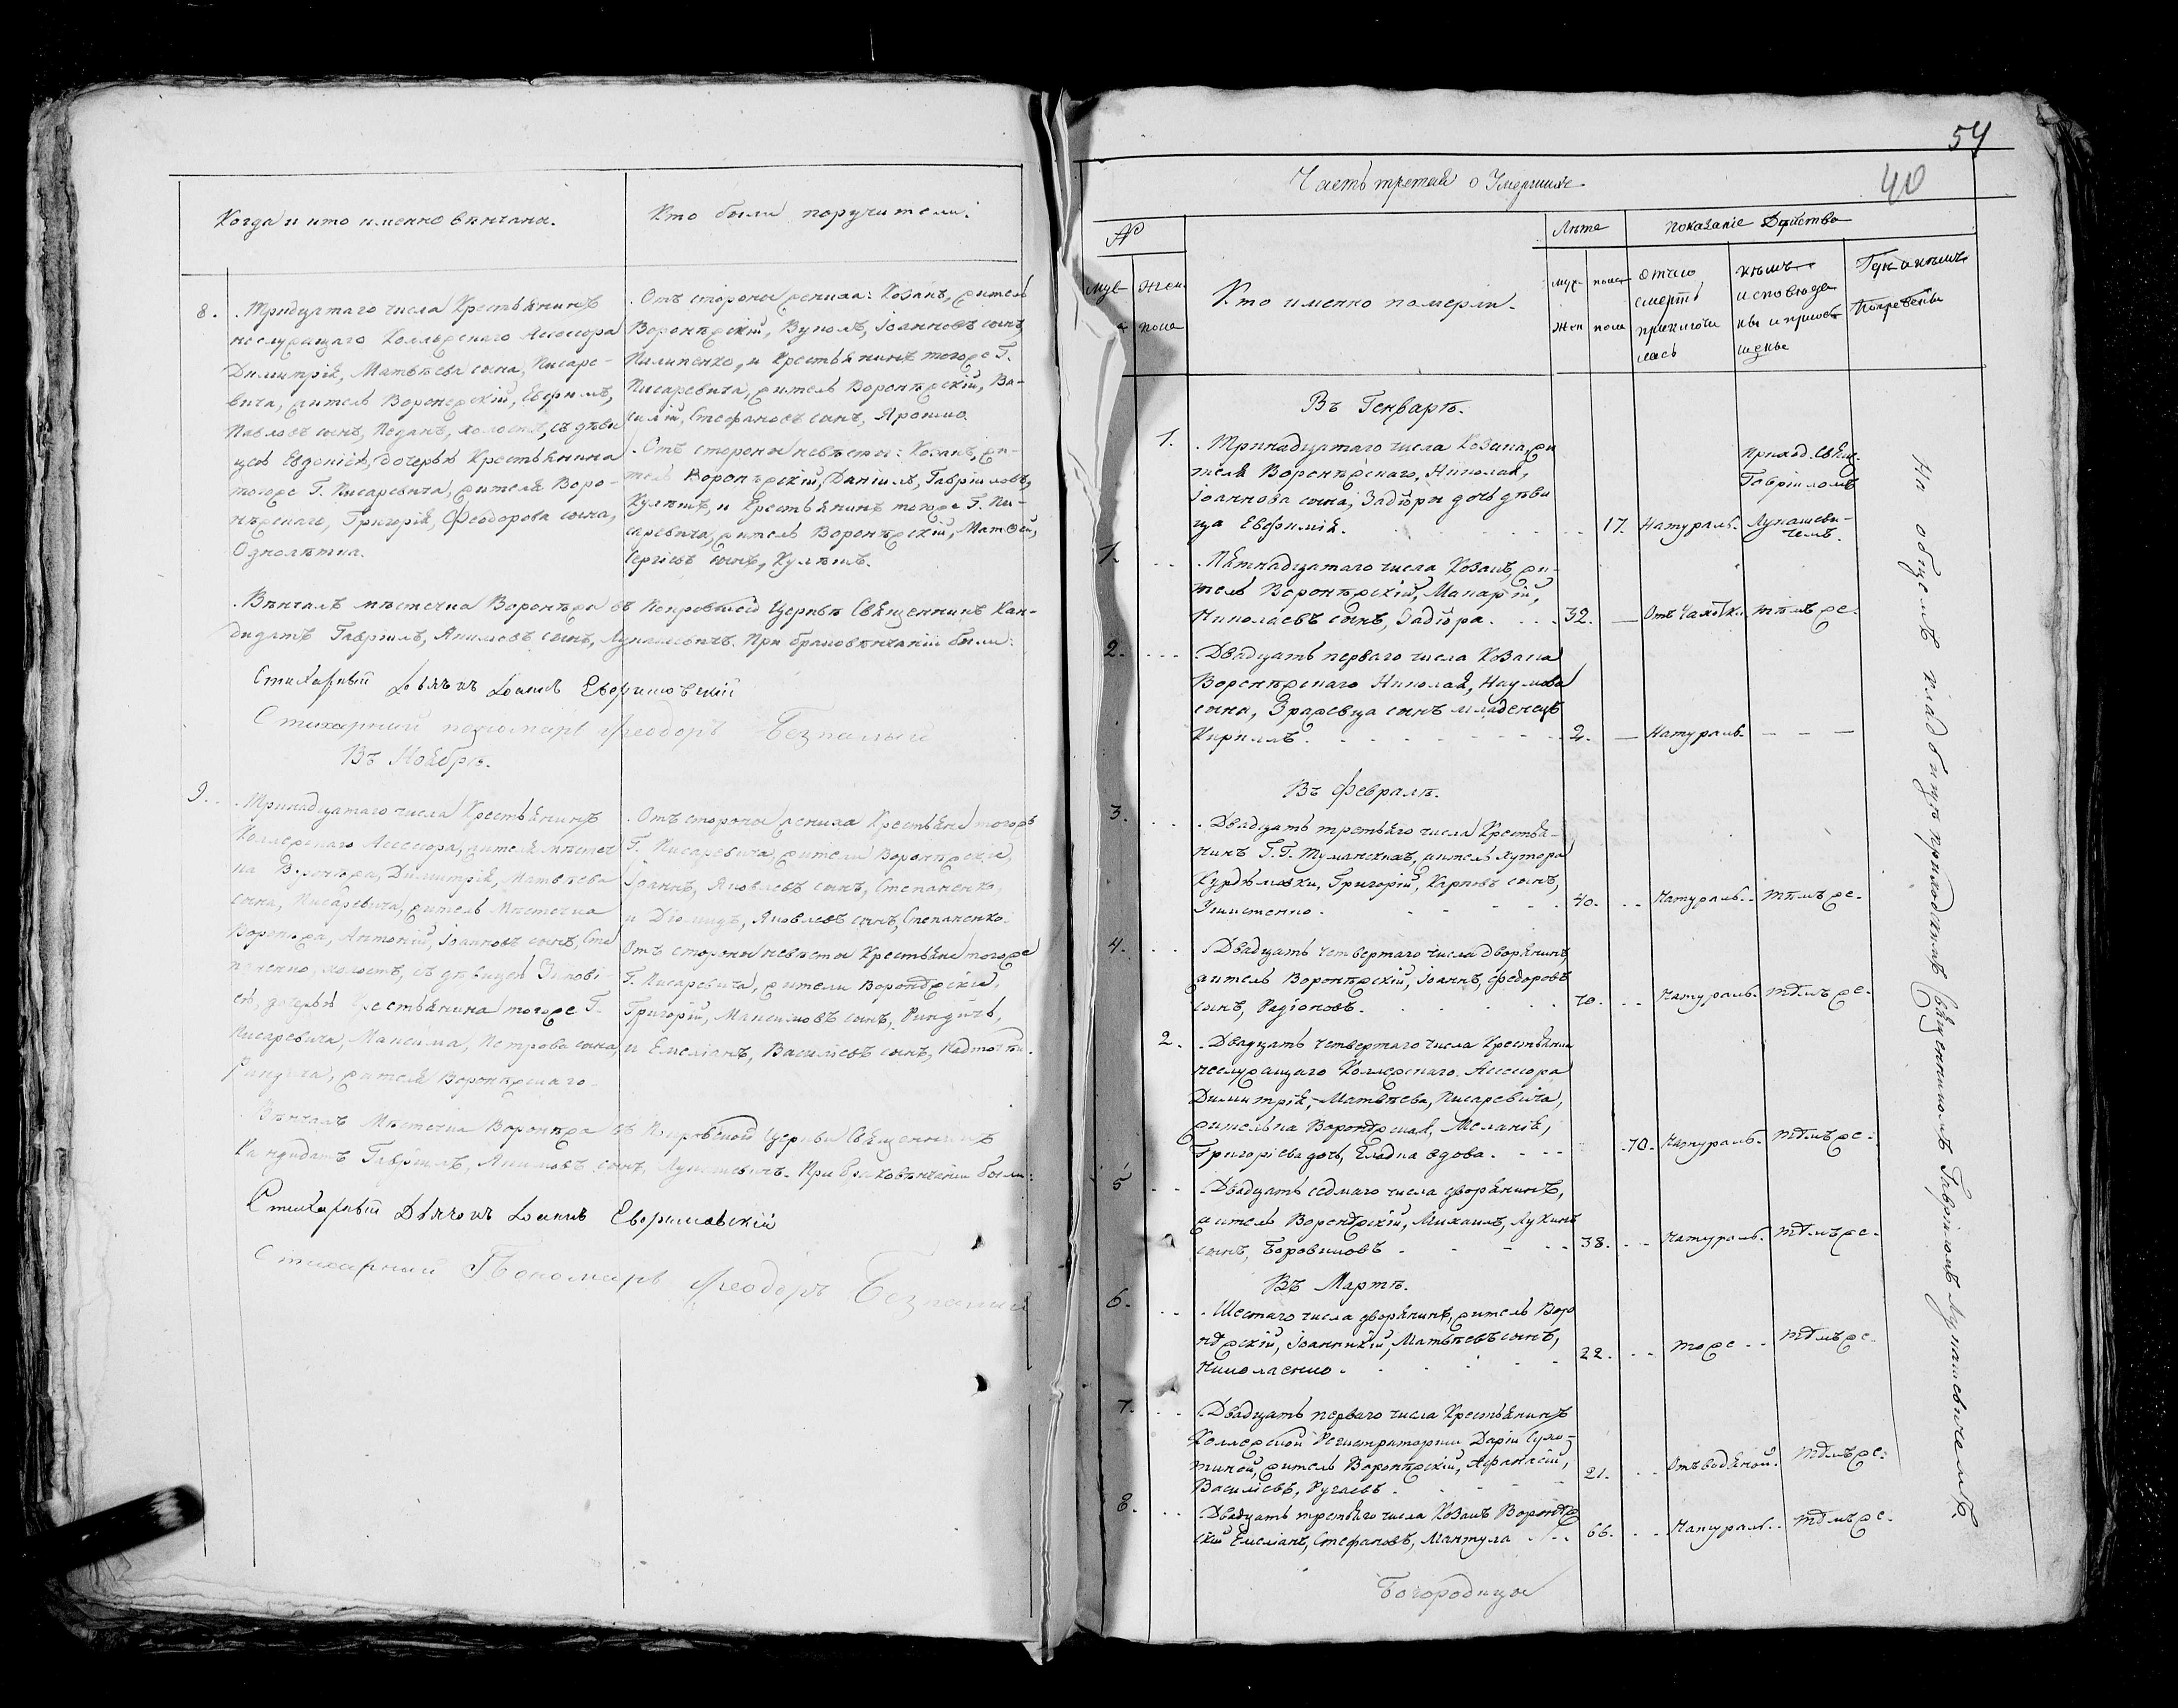 Когда и кто именно вѣнчаны.
Кто были поручители.
8.
Тридцатаго числа Крестьянинъ
неслужащаго Коллежскаго Ассесора
Димитрія, Матвѣева сына, Писаре-
вича, житель Воронежскій, Евфимъ,
Павловъ сынъ, холостъ, съ дѣви
цею Евдокіею, дочерью Крестьянина
тогоже Г. Писаревича, жителя Воро-
нѣжскаго, Григорія, Феодорова сына,
Однолѣтка.
Отъ стороны жениха: Козакъ, житель
Воронѣжскій, Вуколъ, Іоанновъ сынъ,
Пилипенко, и Крестьянинъ тогоже Г.
Писаревича, житель Воронѣжскій, Ва-
силій, Стефановъ сынъ, Ярошко.
Отъ стороны невѣсты: Козакъ, жи-
тель Воронѣжскій, Даніилъ, Гавріиловъ,
Кулѣшъ, и Крестьянинъ тогоже Г. Пи-
саревича, житель Воронѣжскій, Матѳей,
Сергіевъ сынъ, Кулѣшъ.
Вѣнчалъ мѣстечка Воронѣжа въ Покровской Церквѣ Священникъ Кан-
дидатъ Гавріилъ, Акимовъ сынъ, Лукашевичъ. При браковѣнчаніи были:
Стихарный Дьячокъ Іоаннъ Евфимовскій
Стихарный пономарь Феодоръ Безпалый
Въ Ноябрѣ.
9.
Тринадцатаго числа Крестьянинъ
Коллежскаго Ассесора, жителя мѣстеч
ка Воронѣжа, Димитрія, Матвѣева
сына, Писаревича, житель Мѣстечка
Воронѣжа, Антоній, Іоанновъ сынъ, Сте
паненко, холостъ, съ дѣвицею Зинові-
ею, дочерью Крестьянина тогоже Г.
Писаревича, Максима, Петрова сына,
Риндича, жителя Воронѣжскаго.
Отъ стороны жениха Крестьяне тогожъ
Г. Писаревича, жители Воронѣжскіе,
Іоаннъ, Яковлевъ сынъ, Степаненко,
и Діомидъ, Яковлевъ сынъ, Степаненко.
Отъ стороны невѣсты Крестьяне тогоже
Г. Писаревича, жители Воронѣжскіе,
Григорій, Максимовъ сынъ, Риндичъ,
и Емеліанъ, Василіевъ сынъ, Надточій.
Вѣнчалъ Мѣстечка Воронѣжа въ Покровской Церкви Священникъ
Кандидатъ Гавріилъ, Акимовъ сынъ, Лукашевичъ. При браковѣнчаніи были:
Стихарный Дьячокъ Іоаннъ Евфимовскій
Стихарный Пономарь Феодоръ Безпалый
54
40
Часть третья о Умершихъ
№
Муж- Жен.
пола
Кто именно померли.
Лѣта
муж- пола
Жен пола
Показаніе Дѣйства
отчего
смерть
приключи
лась
кѣмъ
исповѣда
ны и приоб
щены
Гдѣ и кѣмъ
Погребены
Въ Генварѣ.
1.
Тринадцатаго числа Козака, жи
теля Воронѣжскаго, Николая,
Іоаннова сына, Задіоры дочь дѣви
ца Евфимія.
17. Натураль.
приход. Свящ.
Гавріиломъ
Лукашеви-
чемъ.
1.
Пятнадцатаго числа Козакъ, жи-
тель Воронѣжскій, Макарій,
Николаевъ сынъ, Задіора.
32. Отъ Чахотки. тѣмъже.
2.
Двадцать перваго числа Козака
Воронѣжскаго Николая, Наумова
сына, Зражевца сынъ младенецъ
Кириллъ.
2. Натураль.
Въ Февралѣ.
3.
Двадцать третьяго числа Крестья-
нинъ Г.Г. Туманскихъ, житель хутора
Курдѣмовки, Григорій, Карповъ сынъ,
40. Натураль. тѣмъже.
4.
Двадцать четвертаго числа дворянинъ,
житель Воронѣжскій, Іоаннъ, Федоровъ
сынъ, Радіоновъ.
70. Натураль. тѣмъже.
2.
Двадцать четвертаго числа Крестьянка
неслужащаго Коллежскаго Ассесора
Димитрія, Матвѣева, Писаревича,
жителька Воронѣжская, Меланія,
Григоріева дочь, Гладка вдова.
70. Натураль. тѣмъже.
5
Двадцать седмаго числа дворянинъ,
житель Воронѣжскій, Михаилъ, Лукинъ
сынъ, Боровиковъ
38. Натураль. тѣмъже.
Въ Мартѣ.
6.
Шестаго числа дворянинъ, житель Воро
нѣжскій, Іоанникій, Матвѣевъ сынъ,
Николаенко.
22. тоже тѣмъже.
7.
Двадцать перваго числа Крестьянинъ
Коллежской Регистраторши Даріи Сухо-
тиной, житель Воронѣжскій, Афанасій,
Василіевъ, Ругаевъ.
21. Отъ водяной. тѣмъже.
8.
Двадцать третьяго числа Козакъ Воронѣж
скій Емеліанъ, Стефановъ, Мантула
66. Натураль. тѣмъже.
На общемъ кладбищѣ приходскимъ Священникомъ Гавріиломъ Лукашевичемъ.
Богородицы